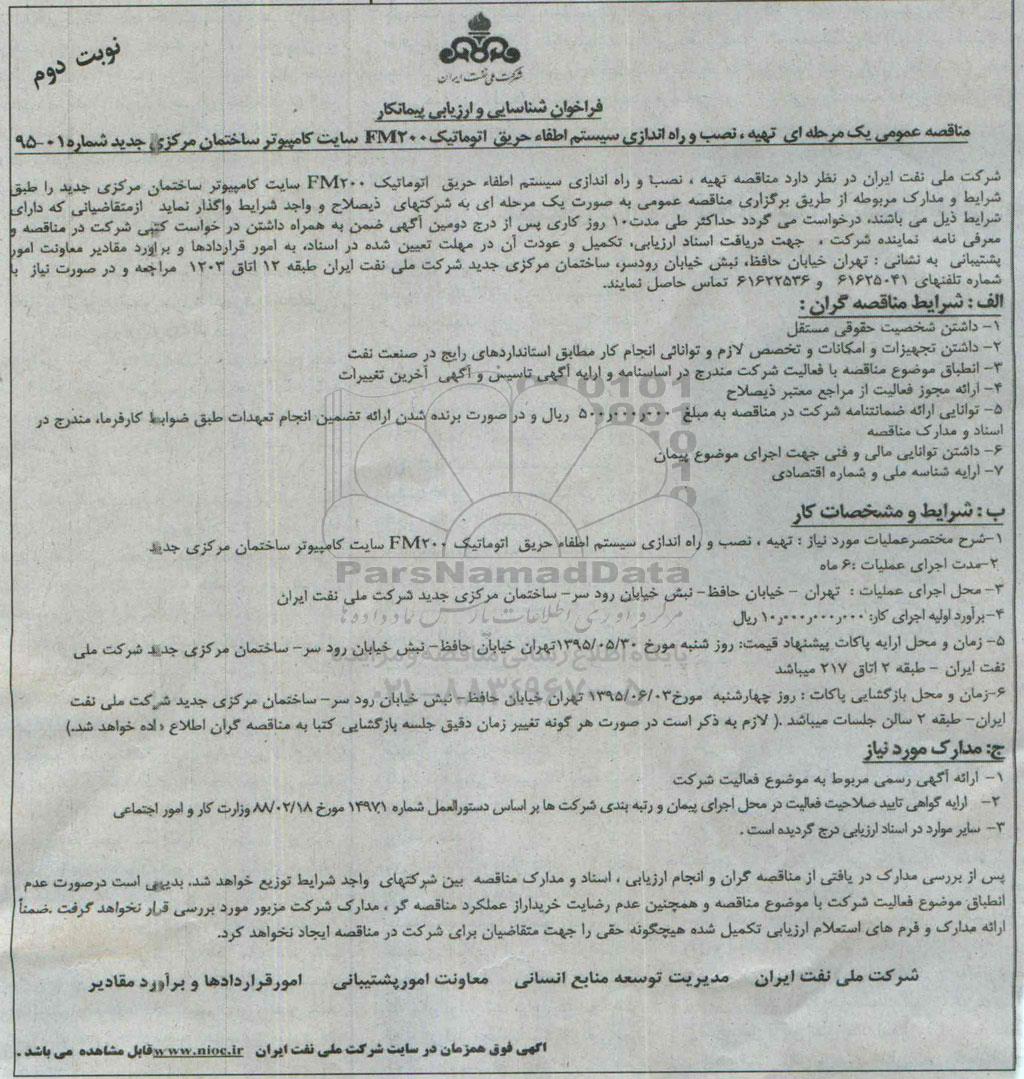 نوبت دوم
شرکت ملی نفت ایران
فراخوان شناسایی و ارزیابی پیمانکار
مناقصه عمومی یک مرحله ای تهیه ، نصب و راه اندازی سیستم اطفاء حریق اتوماتیک FM۲۰۰ سایت کامپیوتر ساختمان مرکزی جدید شماره ۰۱-۹۵
شرکت ملی نفت ایران در نظر دارد مناقصه تهیه ، نصب و راه اندازی سیستم اطفاء حریق اتوماتیک FM۲۰۰ سایت کامپیوتر ساختمان مرکزی جدید را طبق
شرایط و مدارک مربوطه از طریق برگزاری مناقصه عمومی به صورت یک مرحله ای به شرکتهای ذیصلاح و واجد شرایط واگذار نماید ازمتقاضیانی که دارای
شرایط ذیل می باشند، درخواست می گردد حداکثر طی مدت۱۰ روز کاری پس از درج دومین آگهی ضمن به همراه داشتن در خواست کتبی شرکت در مناقصه و
معرفی نامه نماینده شرکت ، جهت دریافت اسناد ارزیابی، تکمیل و عودت آن در مهلت تعیین شده در اسناد، به امور قراردادها و برآورد مقادیر معاونت امور
پشتیبانی به نشانی : تهران خیابان حافظ، نبش خیابان رودسر، ساختمان مرکزی جدید شرکت ملی نفت ایران طبقه ۱۲ اتاق ۱۲۰۳ مراجعه و در صورت نیاز با
شماره تلفنهای ۶۱۶۲۵۰۴۱ و ۶۱۶۲۲۵۳۶ تماس حاصل نمایند.
الف : شرایط مناقصه گران :
۱- داشتن شخصیت حقوقی مستقل
۲- داشتن تجهیزات و امکانات و تخصص لازم و توانائی انجام کار مطابق استانداردهای رایج در صنعت نفت
۳- انطباق موضوع مناقصه با فعالیت شرکت مندرج در اساسنامه و ارایه آگهی تاسیس و آگهی آخرین تغییرات
۴- ارائه مجوز فعالیت از مراجع معتبر ذیصلاح
۵- توانایی ارائه ضمانتنامه شرکت در مناقصه به مبلغ ۵۰۰ر۰۰۰ر۰۰۰ ریال و در صورت برنده شدن ارائه تضمین انجام تعهدات طبق ضوابط کارفرما، مندرج در
اسناد و مدارک مناقصه
۶- داشتن توانایی مالی و فنی جهت اجرای موضوع پیمان
۷- ارایه شناسه ملی و شماره اقتصادی
ب : شرایط و مشخصات کار
۱-شرح مختصرعملیات مورد نیاز : تهیه ، نصب و راه اندازی سیستم اطفاء حریق اتوماتیک FM۲۰۰ سایت کامپیوتر ساختمان مرکزی جدید
۲-مدت اجرای عملیات :۶ ماه
ParsNamadData
۳- محل اجرای عملیات : تهران - خیابان حافظ- نبش خیابان رود سر- ساختمان مرکزی جدید شرکت ملی نفت ایران
مرکز فرآوری اطلاعات پارس نماد داده ها
۴-برآورد اولیه اجرای کار: ۱۰ر۰۰۰ر۰۰۰ر۰۰۰ ریال
۵- زمان و محل ارایه پاکات پیشنهاد قیمت: روز شنبه مورخ ۱۳۹۵/۰۵/۳۰تهران خیابان حافظ- نبش خیابان رود سر- ساختمان مرکزی جدید شرکت ملی
پایگاه اطلاع رسانی مناقصه و مزایده
نفت ایران - طبقه ۲ اتاق ۲۱۷ میباشد
۰۲۱-۸۸۳۴۹۶۷۰-۵
۶-زمان و محل بازگشایی پاکات : روز چهارشنبه مورخ۱۳۹۵/۰۶/۰۳ تهران خیابان حافظ- نبش خیابان رود سر- ساختمان مرکزی جدید شرکت ملی نفت
ایران- طبقه ۲ سالن جلسات میباشد .( لازم به ذکر است در صورت هر گونه تغییر زمان دقیق جلسه بازگشایی کتبا به مناقصه گران اطلاع داده خواهد شد.)
ج: مدارک مورد نیاز
۱- ارائه آگهی رسمی مربوط به موضوع فعالیت شرکت
۲- ارایه گواهی تایید صلاحیت فعالیت در محل اجرای پیمان و رتبه بندی شرکت ها بر اساس دستورالعمل شماره ۱۴۹۷۱ مورخ ۸۸/۰۲/۱۸ وزارت کار و امور اجتماعی
۳- سایر موارد در اسناد ارزیابی درج گردیده است .
پس از بررسی مدارک در یافتی از مناقصه گران و انجام ارزیابی ، اسناد و مدارک مناقصه بین شرکتهای واجد شرایط توزیع خواهد شد. بدیهی است درصورت عدم
انطباق موضوع فعالیت شرکت با موضوع مناقصه و همچنین عدم رضایت خریداراز عملکرد مناقصه گر ، مدارک شرکت مزبور مورد بررسی قرار نخواهد گرفت .ضمناً
ارائه مدارک و فرم های استعلام ارزیابی تکمیل شده هیچگونه حقی را جهت متقاضیان برای شرکت در مناقصه ایجاد نخواهد کرد.
شرکت ملی نفت ایران مدیریت توسعه منابع انسانی معاونت امورپشتیبانی امورقراردادها و برآورد مقادیر
اگهی فوق همزمان در سایت شرکت ملی نفت ایران www.nioc.ir قابل مشاهده می باشد .